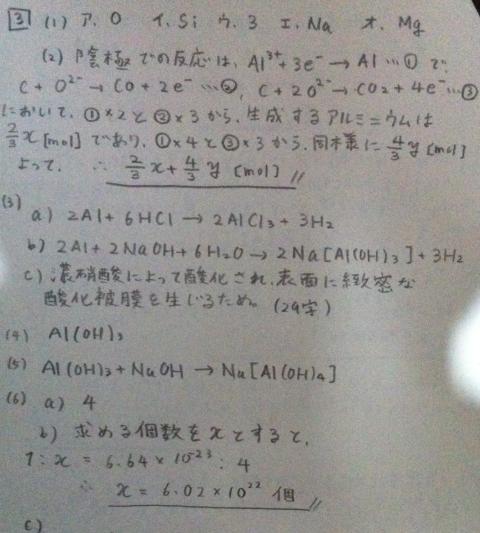 3 (1) ア. O イ. Si ウ. 3 エ. Na オ. Mg
(2) 陰極での反応は、Al³⁺+3e⁻→Al…① で
C + O²⁻ → CO + 2e⁻ …②, C + 2O²⁻ → CO₂ + 4e⁻…③
において、①×2と②×3から、生成するアルミニウムは
2/3 x [mol] であり、①×4と③×3から、同様に 4/3 y [mol]
よって、∴ 2/3 x + 4/3 y [mol] //
(3)
a) 2Al + 6HCl → 2AlCl₃ + 3H₂
b) 2Al + 2NaOH + 6H₂O → 2Na[Al(OH)₃] + 3H₂
c) 濃硝酸によって酸化され、表面に緻密な
酸化被膜を生じるため。(29字)
(4) Al(OH)₃
(5) Al(OH)₃ + NaOH → Na[Al(OH)₄]
(6) a) 4
b) 求める個数をxとすると、
1 : x = 6.64 × 10⁻²³ : 4
∴ x = 6.02 × 10²² 個 //
c)